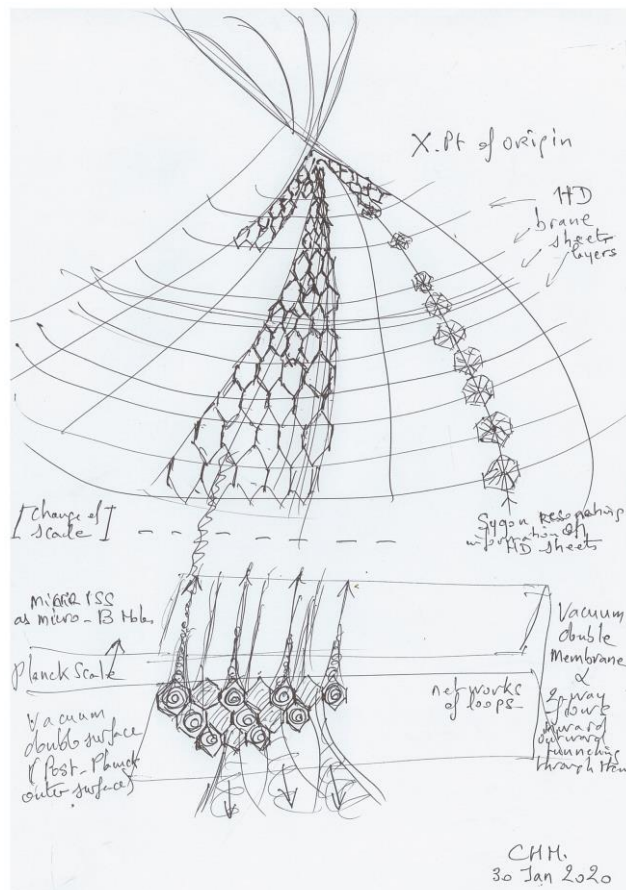 X. Pt of Origin
HD
brane
sheets
layers
[Change of]
scale
Sygon Resonating
information of
HD sheets
ISS
as micro-B Holes
Planck Scale
Vacuum
double surface
(Post-Planck
outer surface)
networks
of loops
Vacuum
double
Membrane
&
2-way
flows
inward
outward
through them
CHM.
30 Jan 2020